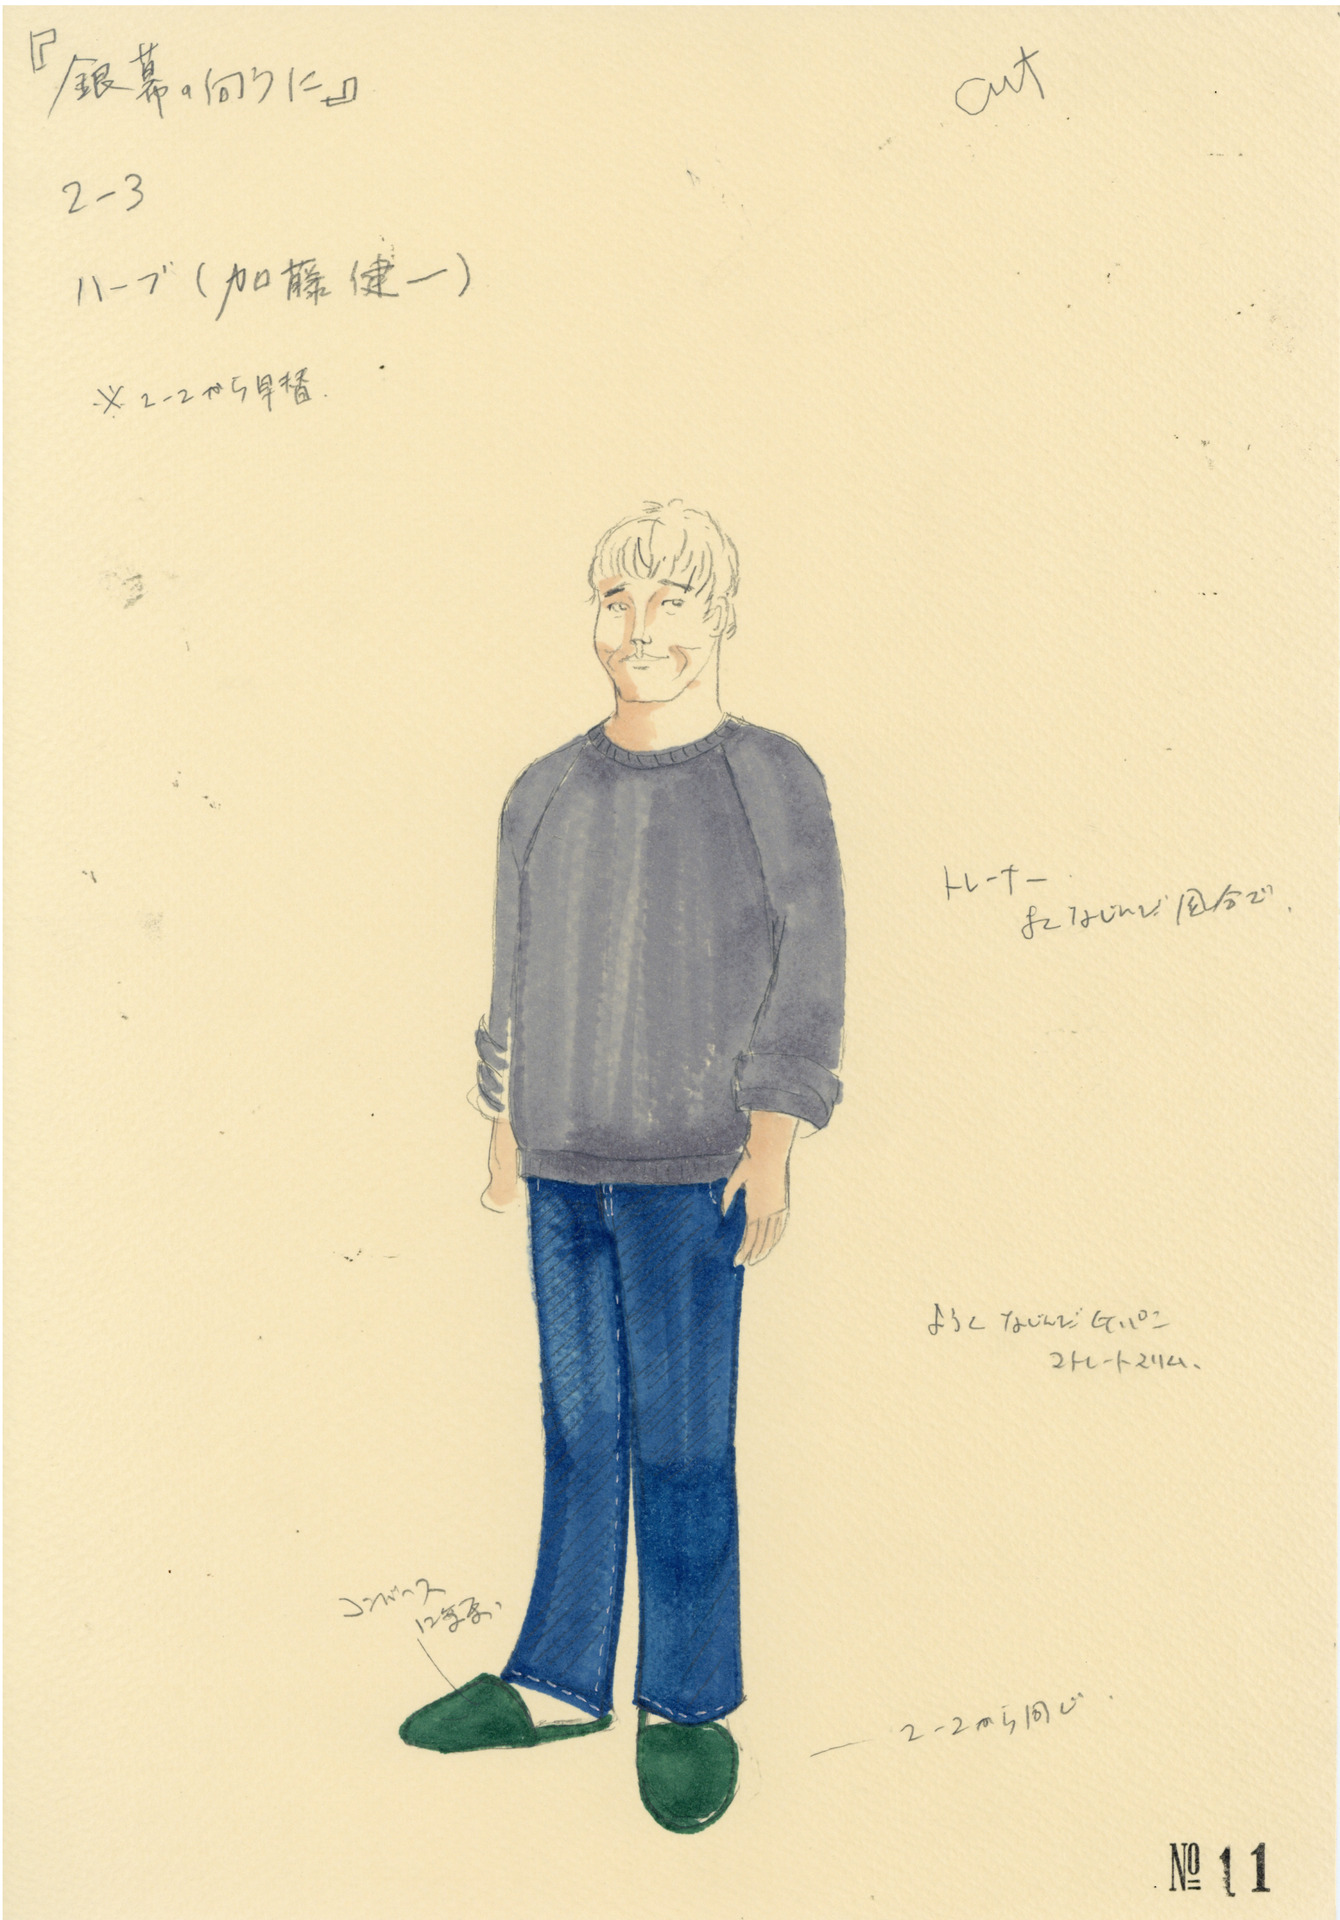 『銀幕の向うに』
cut
2-3
ハーブ(加藤健一)
※2-2から早替.
トレーナー.
よくなじんだ風合で.
ようくなじんだGパン
ストレートスリム、
コンバース
2-2から同じ.
№11